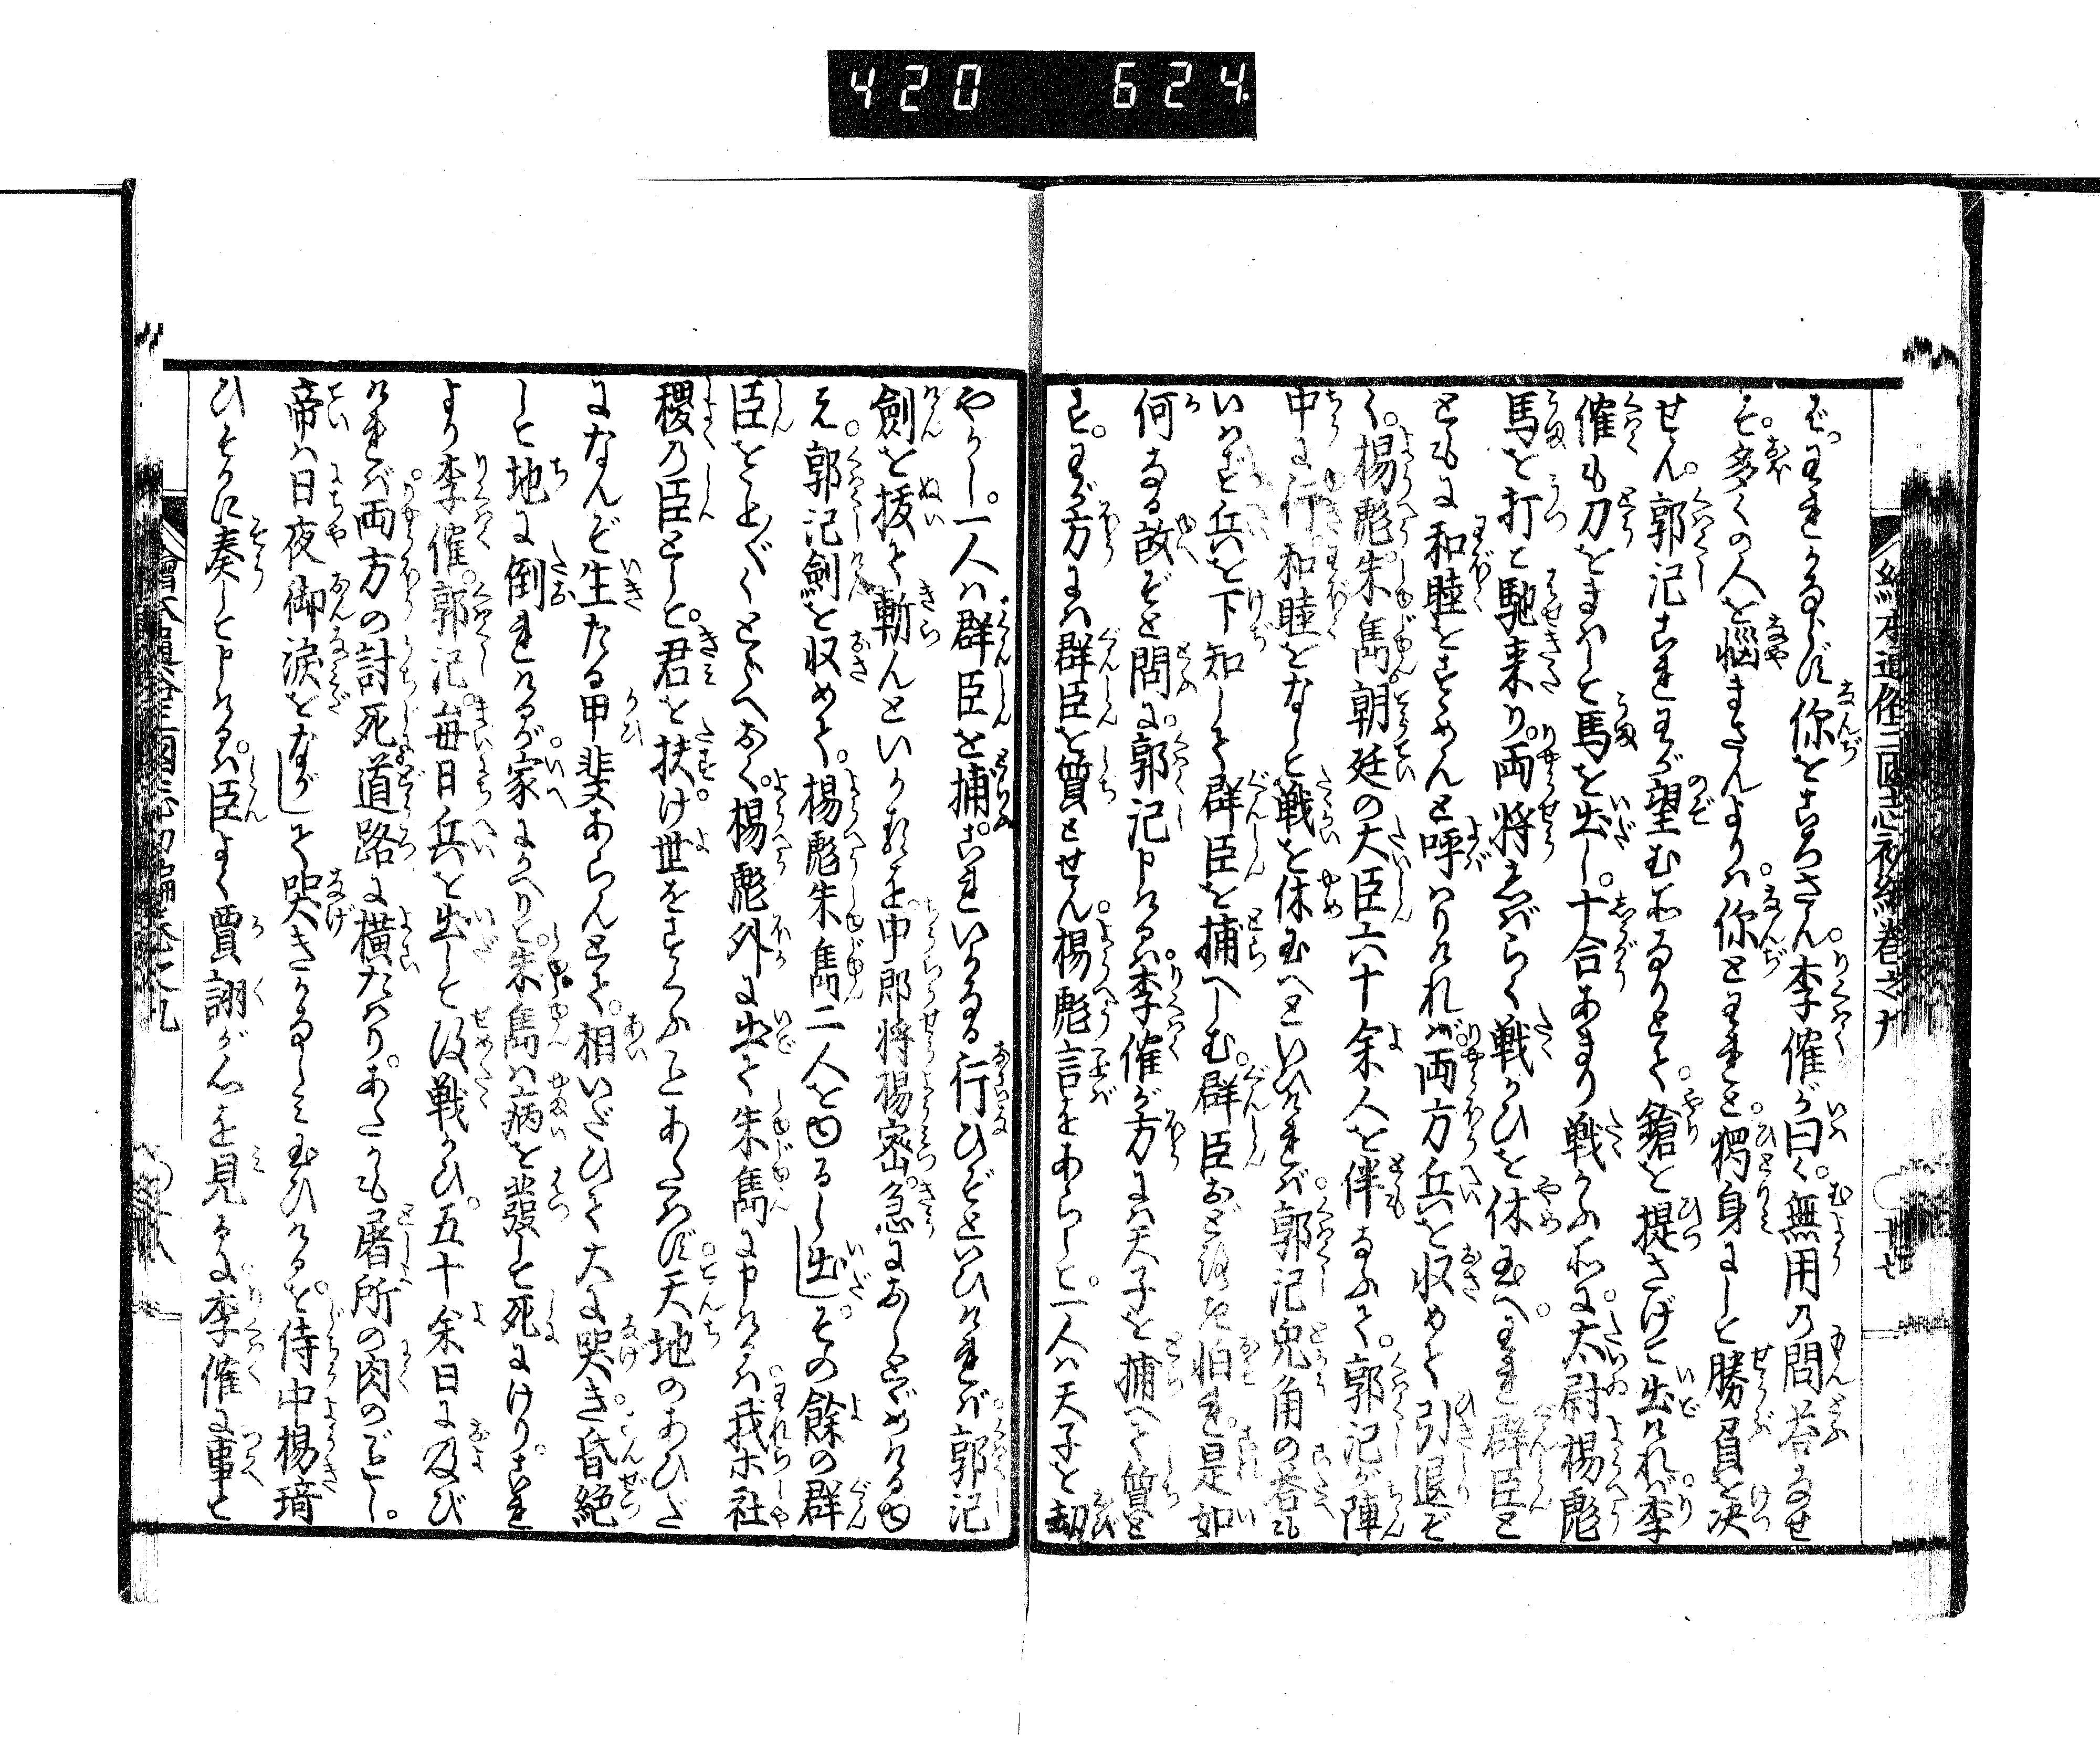 420 624
繪本通俗三国志初編巻之九 十七
ば。われかならず你をころさん。李傕が曰く。無用の問答なせ
そ。多くの人を悩まさんよりは。你とわれと。獨身にして勝負を決
せん。郭汜これわが望むところなりとて。鎗を提さげて出ければ。李
傕も刀をまはして馬を出し。十合あまり戦かふ所に。太尉楊彪
馬を打て馳来り。両将しばらく戦かひを休め玉へ。われ群臣と
ともに和睦をすゝめんと呼はりければ。両方兵を収めて引退ぞ
く。楊彪朱雋朝廷の大臣六十余人を伴なふて。郭汜が陣
中に行。和睦をなして戦を休玉へといひければ。郭汜兎角の荅も
いはず。兵を下知して群臣を捕へしむ。群臣おどろき怕れ。是如
何なる故ぞと問に。郭汜申けるは。李傕が方には天子を捕へて質と
す。わが方には群臣を質とせん。楊彪言をあらして。一人は天子を劫
やかし。一人は群臣を捕。これいかなる行ひぞといひければ。郭汜
劍を抜て斬んといかるを。中郎将楊密。急におしとゞめける由
え。郭汜劍を収めて。楊彪朱雋二人を由るし出し。その餘の群
臣をとゞ〳〵くとらへおく。楊彪外に出て朱雋に申けるは。我ホ社
稷の臣として。君を扶け世をすくふことあたはず。天地のあひだ
になんぞ生たる甲斐あらんとて。相いだひて大に哭き。昏絶
して地に倒れけるが。家にかへりて。朱雋は病を發して死にけり。これ
より李傕。郭汜。毎日兵を出して攻戦かひ。五十余日に及び
ければ。両方の討死道路に横たはり。あたかも屠所の肉のごとし。
帝は日夜御涙をながして哭きかなしみ玉ひけるを。侍中楊琦
ひそかに奏して申けるは。臣よく賈詡が心を見るに。李傕に事て
繪本通俗三國志初編巻之九